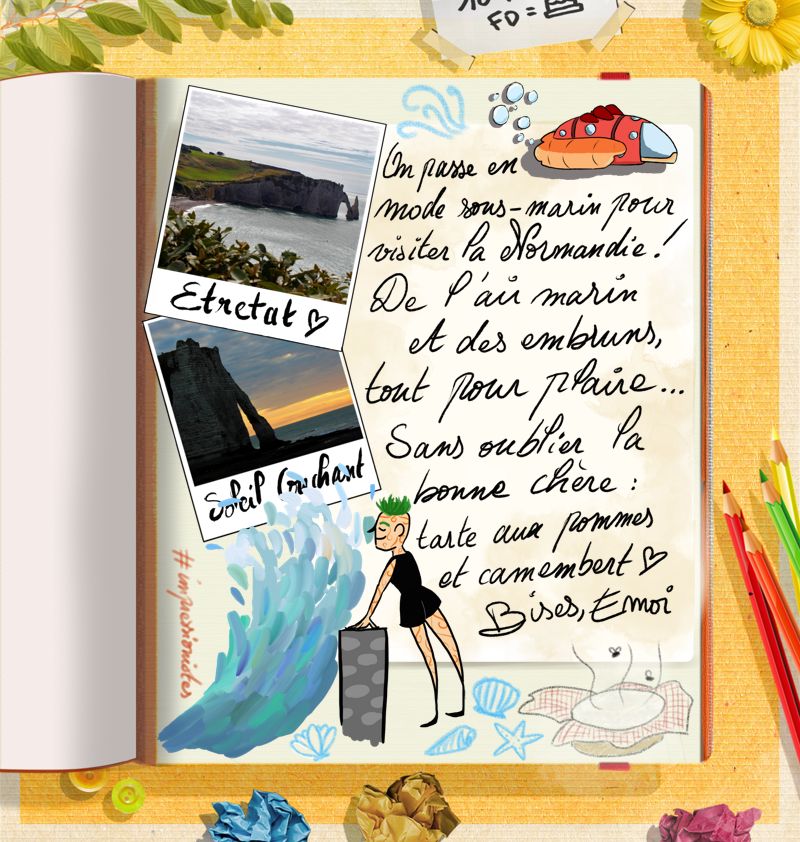 FD =
On passe en
mode sous-marin pour
visiter la Normandie !
De l'air marin
et des embruns,
tout pour plaire...
Sans oublier la
bonne chère :
tarte aux pommes
et camembert ♡
Bises, Emoi
Etretat ♡
Soleil Couchant
#impressionnistes